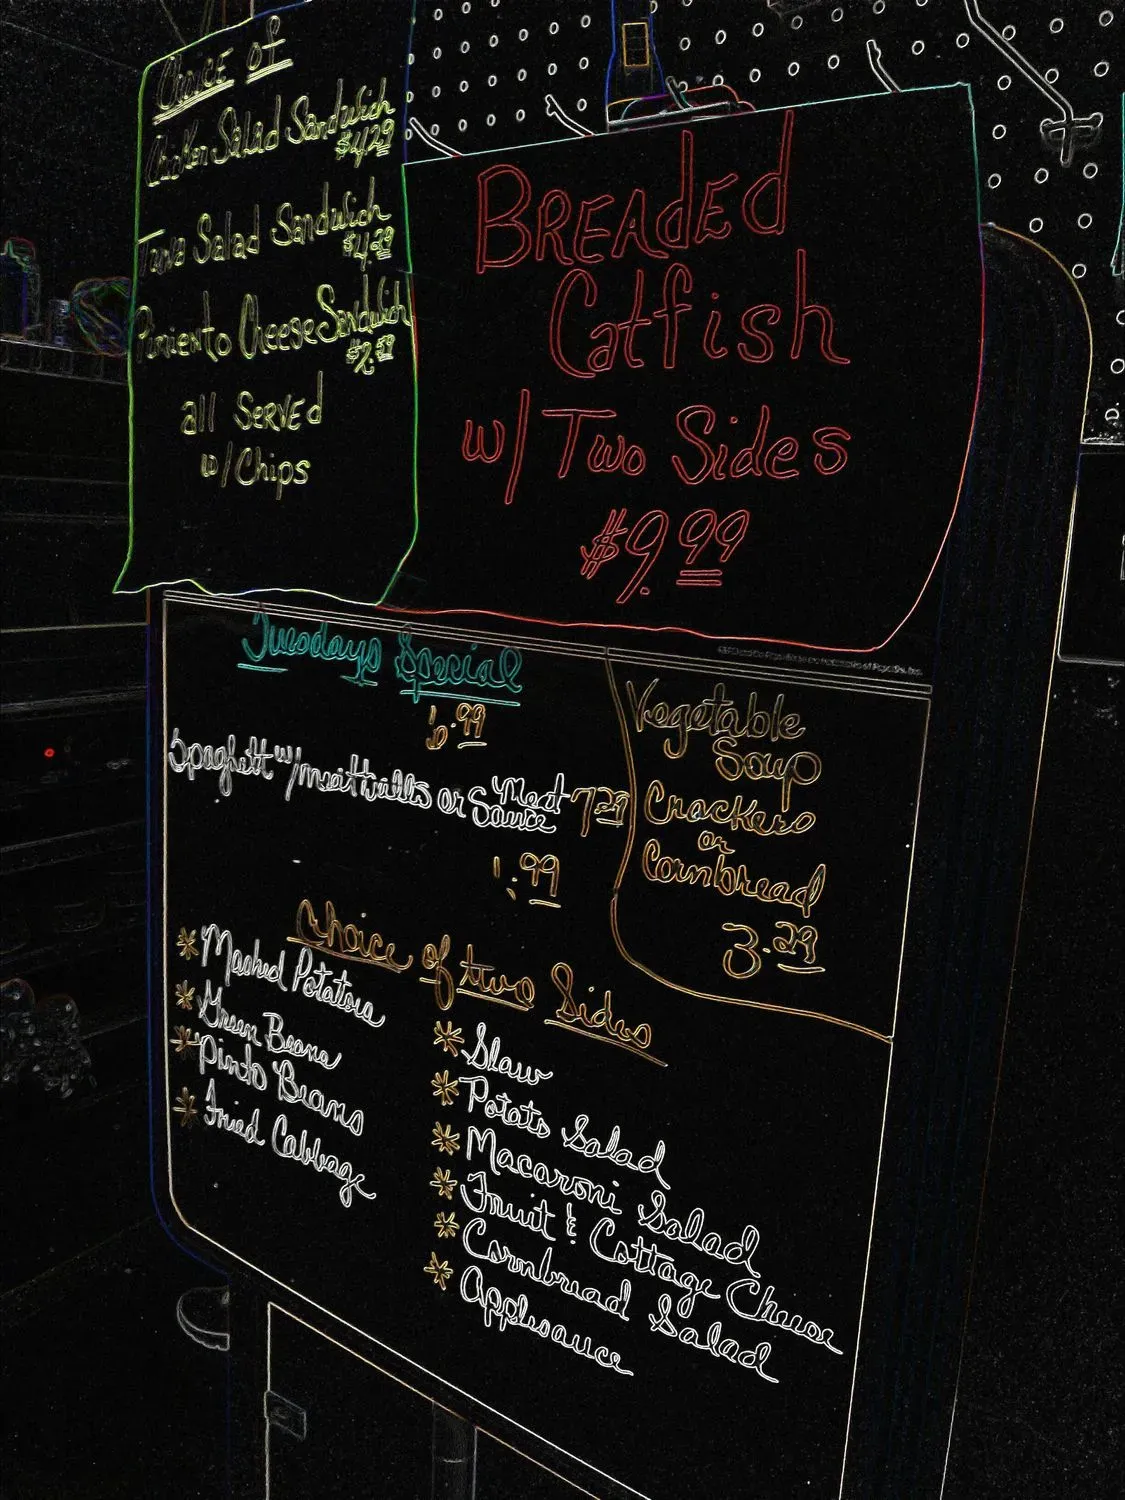 Choice of
Chicken Salad Sandwich
$4.29
Tuna Salad Sandwich
$4.29
Pimiento Cheese Sandwich
all SERVEd
w/Chips
BREAdEd
Catfish
w/ Two Sides
$9.99
Tuesdays Special
6.99
Spaghetti w/meatballs or Meat Sauce 7.29
1.99
Vegetable
Soup
Crackers
or
Cornbread
3.29
Choice of two Sides
* Mashed Potatoes
* Green Beans
* Pinto Beans
* Fried Cabbage
* Slaw
* Potato Salad
* Macaroni Salad
* Fruit & Cottage Cheese
* Cornbread Salad
* Applesauce